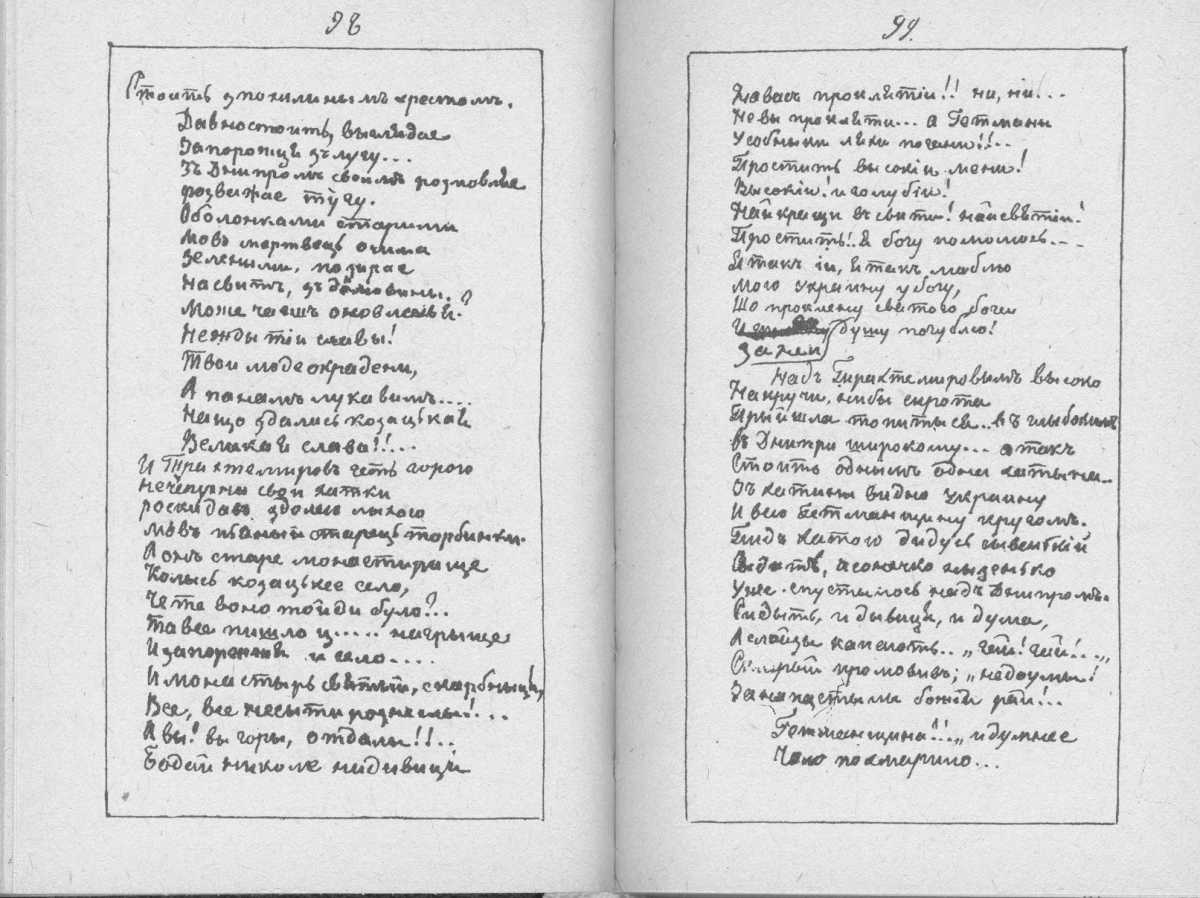 98
Стоить зпохилиным хрестомъ.
Давно стоить, выглядає
Запорожце зъ лугу...
Зъ Днипромъ своимъ розмовляе
розважае тугу.
Оболонками старыми
мовъ мертвець очима
зелеными, позирае
На свитъ, зъ домовины.
Може чаешъ оновленья?
Нежды тіи славы!
Твои люде окрадени,
А панамъ лукавимъ....
Нащо здалась козацькая
Великая слава!!...
И Трахтемировъ геть горою
нечепурни свои хатки
роскидавъ здолею лыхою
мовъ пьяный старець торбинки.
А онъ старе монастирище
Колысь козацькее село,
Чи те воно тойди було?..
та все пишло ц..... на грыще
И запорожжя и село....
И монастырь святый, скарбныця,
Все, все неситы рознеслы!...
А вы! вы горы, оддалы!!..
Бодай николе недивиця
99.
На васъ проклятіи!! ни, ни!...
Не вы прокляти... а Гетманы
Усобныки ляхи поганы!!...
Простить высокіи мени!
Высокіи! и голубіи!
Найкращи въ свити! найсвятіи!
Простить!.. Я богу помолюсь...
Я такъ іи, я такъ люблю
мою украину убогу,
Що проклену святого бога
Душу погублю!
за неи
Надъ Трахтемировымъ высоко
На кручи, ниби сирота
Прыйшла топитыся.. въ глыбокимъ
въ Днипри широкому... отакъ
Стоить однымъ одна хатына..
Зъ хатины видно украину
И всю гетманщину кругомъ.
Пидъ хатою дидусь сывенькій
Сидить, а сонечко нызенько
Уже спустылось надъ Днипромъ.
Сидыть, и дывиця, и дума,
А слёзы капають.. „гай! гай!...„
Старый промовивъ; „недоумы!
Занапастылы божій рай!...
Гетманщина!!..„ и думнее
Чоло похмарило...